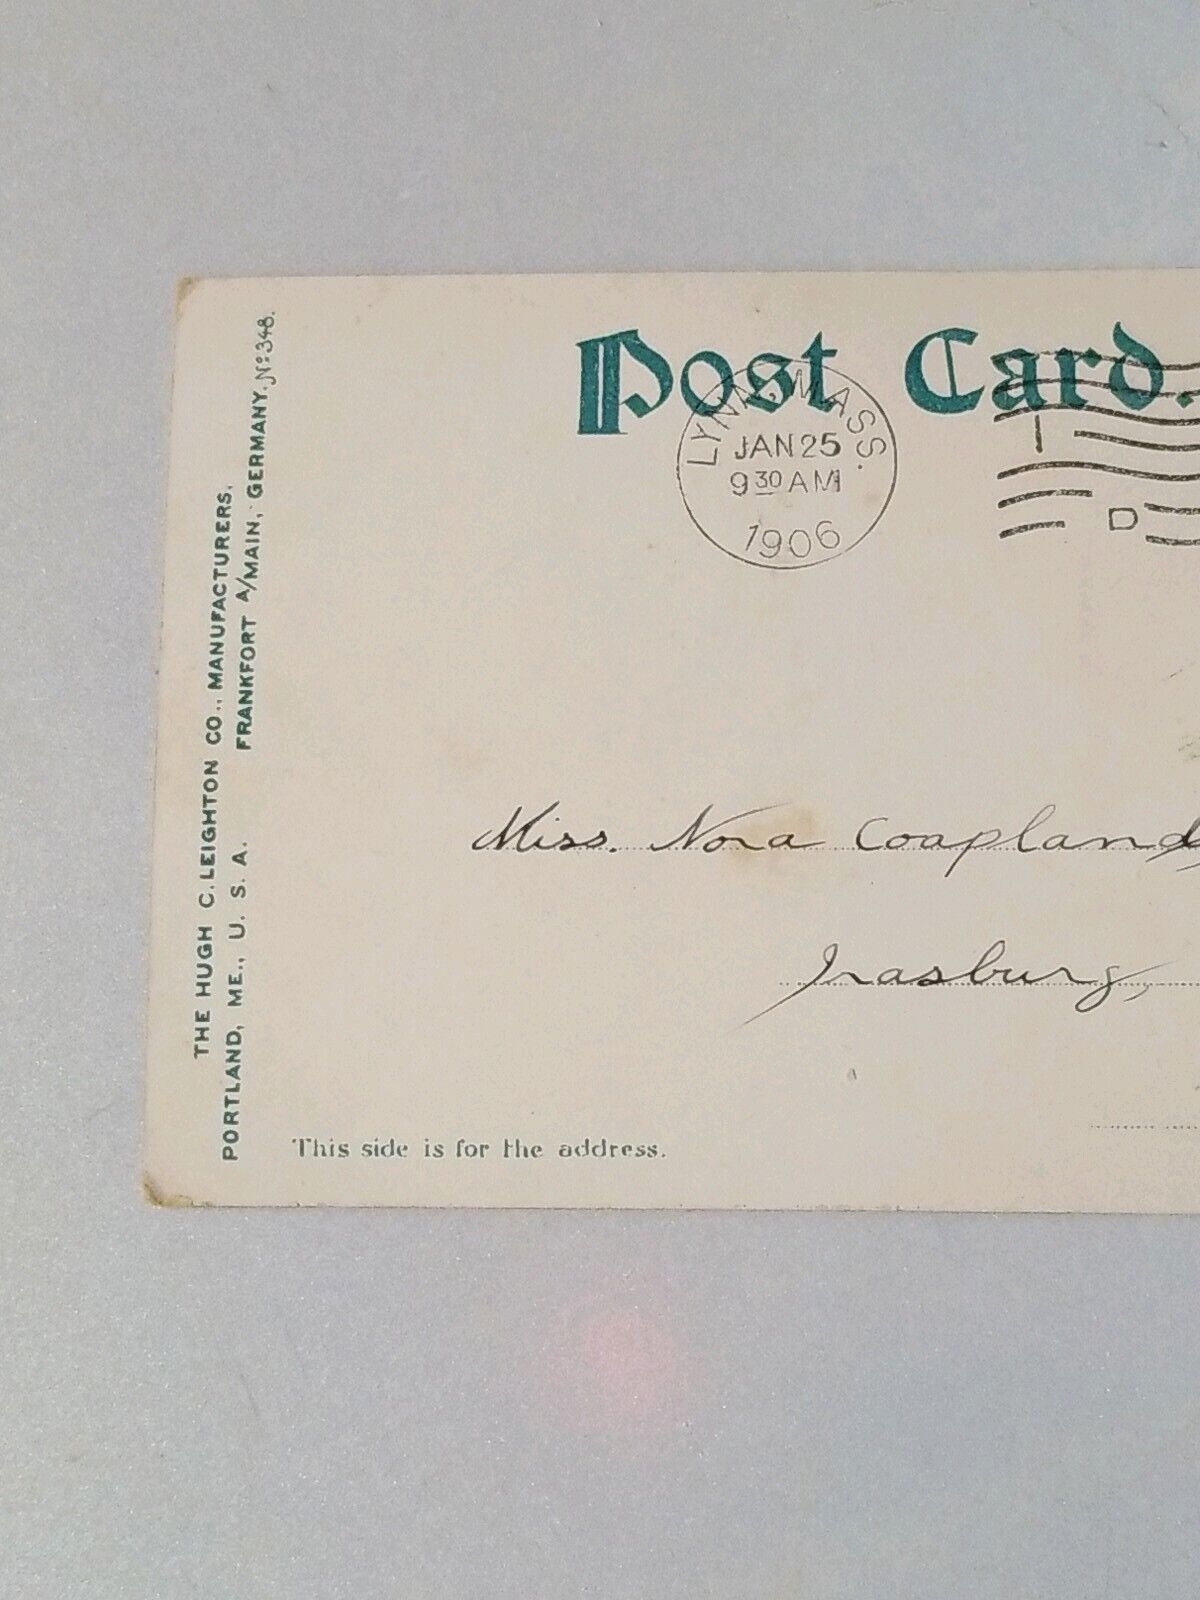 Post Card.
LYNN, MASS.
JAN 25
9 30 AM
1906
I
D
THE HUGH C. LEIGHTON CO., MANUFACTURERS,
PORTLAND, ME., U. S. A. FRANKFORT A/MAIN, GERMANY. No. 348.
Miss. Nora Coapland,
Irasburg,
This side is for the address.